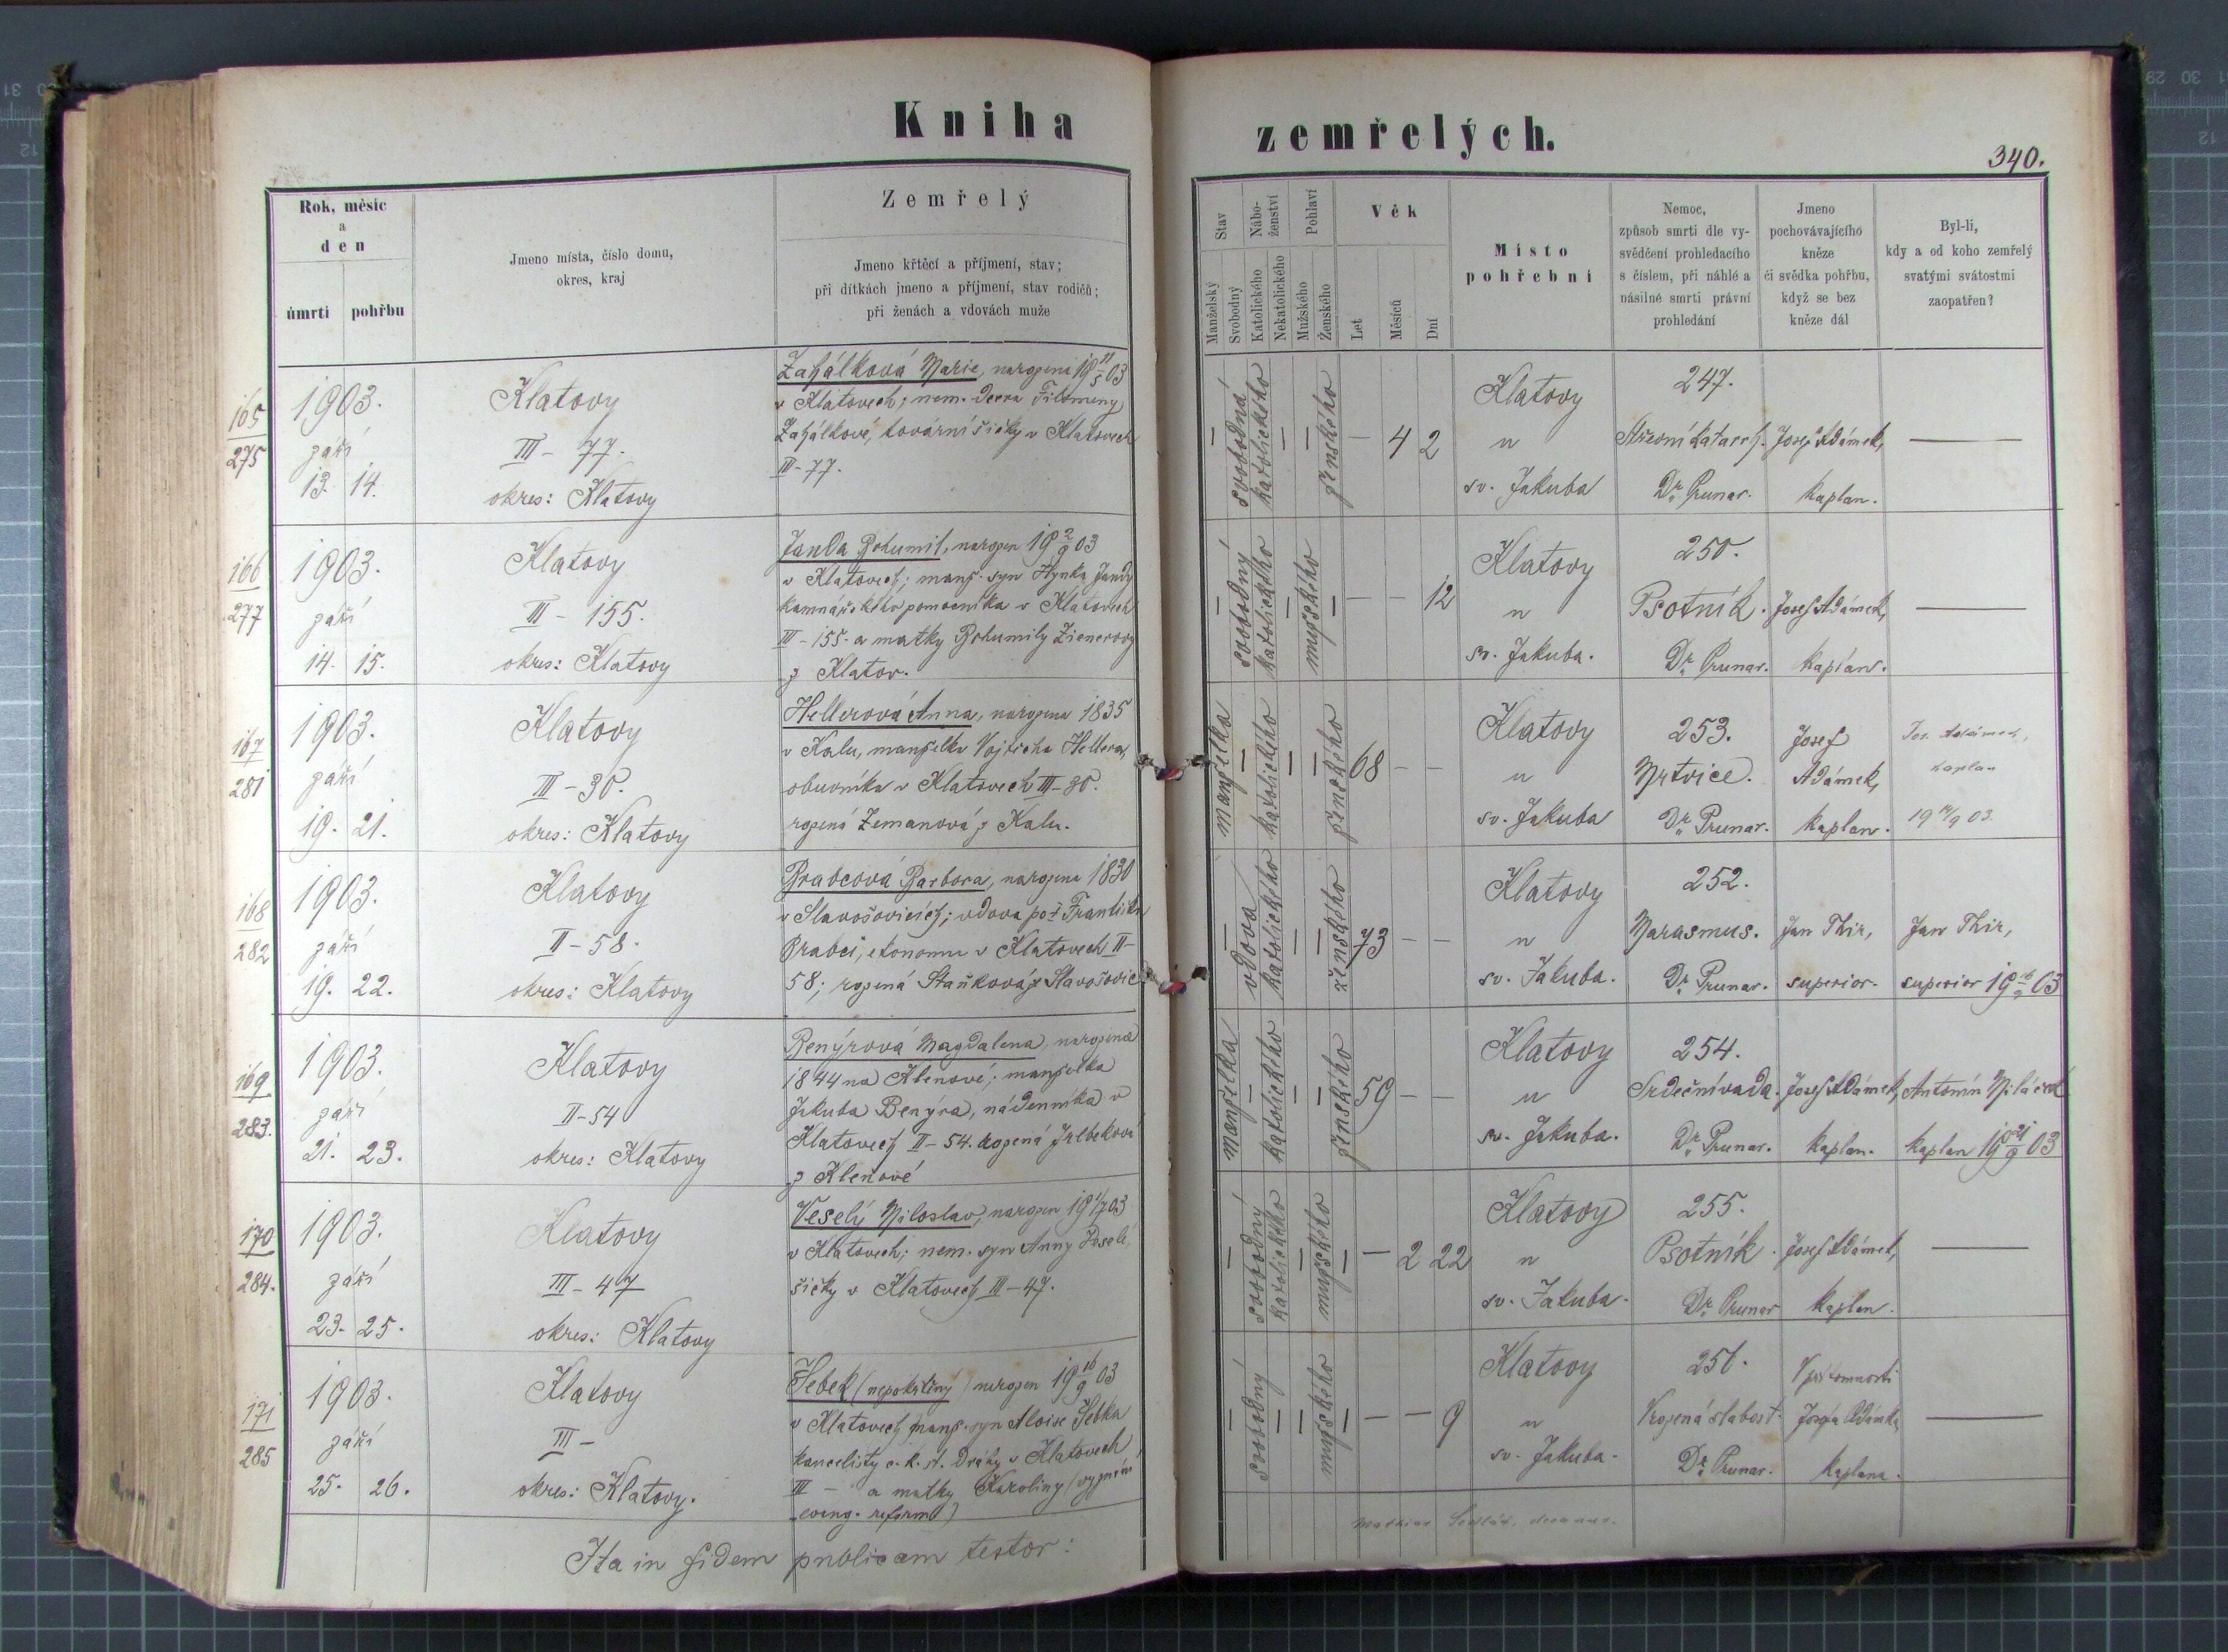 Kniha zemřelých.
340.
Rok, měsíc
a
den
úmrtí pohřbu
Jmeno místa, číslo domu,
okres, kraj
Zemřelý
Jmeno křtěcí a příjmení, stav;
při dítkách jmeno a příjmení, stav rodičů;
při ženách a vdovách muže
Stav
Manželský
Svobodný
Nábo-
ženství
Katolického
Nekatolického
Pohlaví
Mužského
Ženského
Věk
Let
Měsíců
Dní
Místo
pohřební
Nemoc,
způsob smrti dle vy-
svědčení prohledacího
s číslem, při náhlé a
násilné smrti právní
prohledání
Jmeno
pochovávajícího
kněze
či svědka pohřbu,
když se bez
kněze dál
Byl-li,
kdy a od koho zemřelý
svatými svátostmi
zaopatřen?
165
275
1903.
září
13. 14.
Klatovy
III - 77.
okres: Klatovy
Zahálková Marie, narozena 19 11/5 03
v Klatovech; nem. dcera Filomeny
Zahálkové, tovární šičky v Klatovech
III - 77.
— svobodná katolického — — ženského — 4 2
Klatovy
u
sv. Jakuba
247.
Střevní katarrh.
Dr. Prunar.
Josef Adámek,
kaplan.
—
166
277
1903.
září
14. 15.
Klatovy
III - 155.
okres: Klatovy
Janda Bohumil, narozen 19 2/9 03
v Klatovech; manž. syn Hynka Jandy
kamnářského pomocníka v Klatovech
III - 155. a matky Bohumily Zienerovy
z Klatov.
— svobodný katolického — mužského — — — 12
Klatovy
u
sv. Jakuba.
250.
Psotník.
Dr. Prunar.
Josef Adámek,
kaplan.
—
167
281
1903.
září
19. 21.
Klatovy
III - 30.
okres: Klatovy
Hellerová Anna, narozena 1835
v Kalu, manželka Vojtěcha Hellera,
obuvníka v Klatovech III - 30.
rozená Zemanová z Kalu.
manželka — katolického — — ženského 68 — —
Klatovy
u
sv. Jakuba
253.
Mrtvice.
Dr. Prunar.
Josef
Adámek,
kaplan.
Jos. Adámek,
kaplan
168
282
1903.
září
19. 22.
Klatovy
II - 58.
okres: Klatovy
Brabcová Barbora, narozena 1830
v Slavošovicích; vdova po † Františku
Brabci, ekonomu v Klatovech II -
58; rozená Staňková z Slavošovic
— vdova katolického — — ženského 73 — —
Klatovy
u
sv. Jakuba.
252.
Marasmus.
Dr. Prunar.
Jan Thir,
superior.
Jan Thir,
superior 19 16/9 03
169
283.
1903.
září
21. 23.
Klatovy
II - 54
okres: Klatovy
Benýrová Magdalena, narozená
1844 na Klenové; manželka
Jakuba Benýra, nádenníka v
Klatovech II - 54. rozená
z Klenové
manželka — katolického — — ženského 59 — —
Klatovy
u
sv. Jakuba.
254.
Srdeční vada.
Dr. Prunar.
Josef Adámek,
kaplan.
Antonín Miláček
kaplan 19 21/9 03
170
284.
1903.
září
23. 25.
Klatovy
III - 47
okres: Klatovy
Veselý Miloslav, narozen 19 1/7 03
v Klatovech; nem. syn Anny Veselé,
šičky v Klatovech III - 47.
— svobodný katolického — mužského — — 2 22
Klatovy
u
sv. Jakuba.
255.
Psotník.
Dr. Prunar
Josef Adámek,
kaplan.
—
171
285
1903.
září
25. 26.
Klatovy
III -
okres: Klatovy.
Šebek (nepokřtěný) narozen 19 16/9 03
v Klatovech, manž. syn Aloise Šebka
kancelisty c. k. st. dráhy v Klatovech
III - a matky Karoliny (vyznání
evang. reform)
— svobodný — — mužského — — — 9
Klatovy
u
sv. Jakuba.
256.
Vrozená slabost.
Dr. Prunar.
V přítomnosti
Josefa Adámka,
kaplana.
—
Ita in fidem publicam testor:
Mathias Sedlák, decanus.